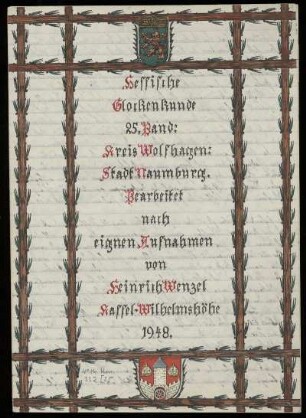 Hessische
Glockenkunde
25. Band:
Kreis Wolfhagen:
Stadt Naumburg.
Bearbeitet
nach
eignen Aufnahmen
von
Heinrich Wenzel
Kassel-Wilhelmshöhe
1948.